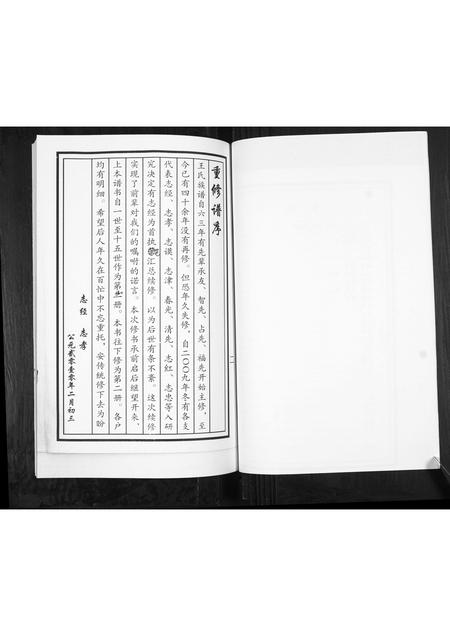 重修谱序
王氏族谱自六三年有先辈承友、智先、占先、福先开始主修，至
今已有四十余年没有再修。但恐年久失修，自二〇〇九年冬有各支
代表志经、志孝、志谟、志津、春光、清先、志红、志忠等入研
究决定有志经为首执笔汇总续修。以为后世有条不紊。这次续修
实现了前辈对我们的嘱咐的诺言。本次修书承前启后继望开来、
上本谱书自一世至十五世作为第一册。本书往下修为第二册。各户
均有明细。希望后人年久在百忙中不忘重托，安传统修下去为盼
志经 志孝
公元贰零壹零年二月初三
二